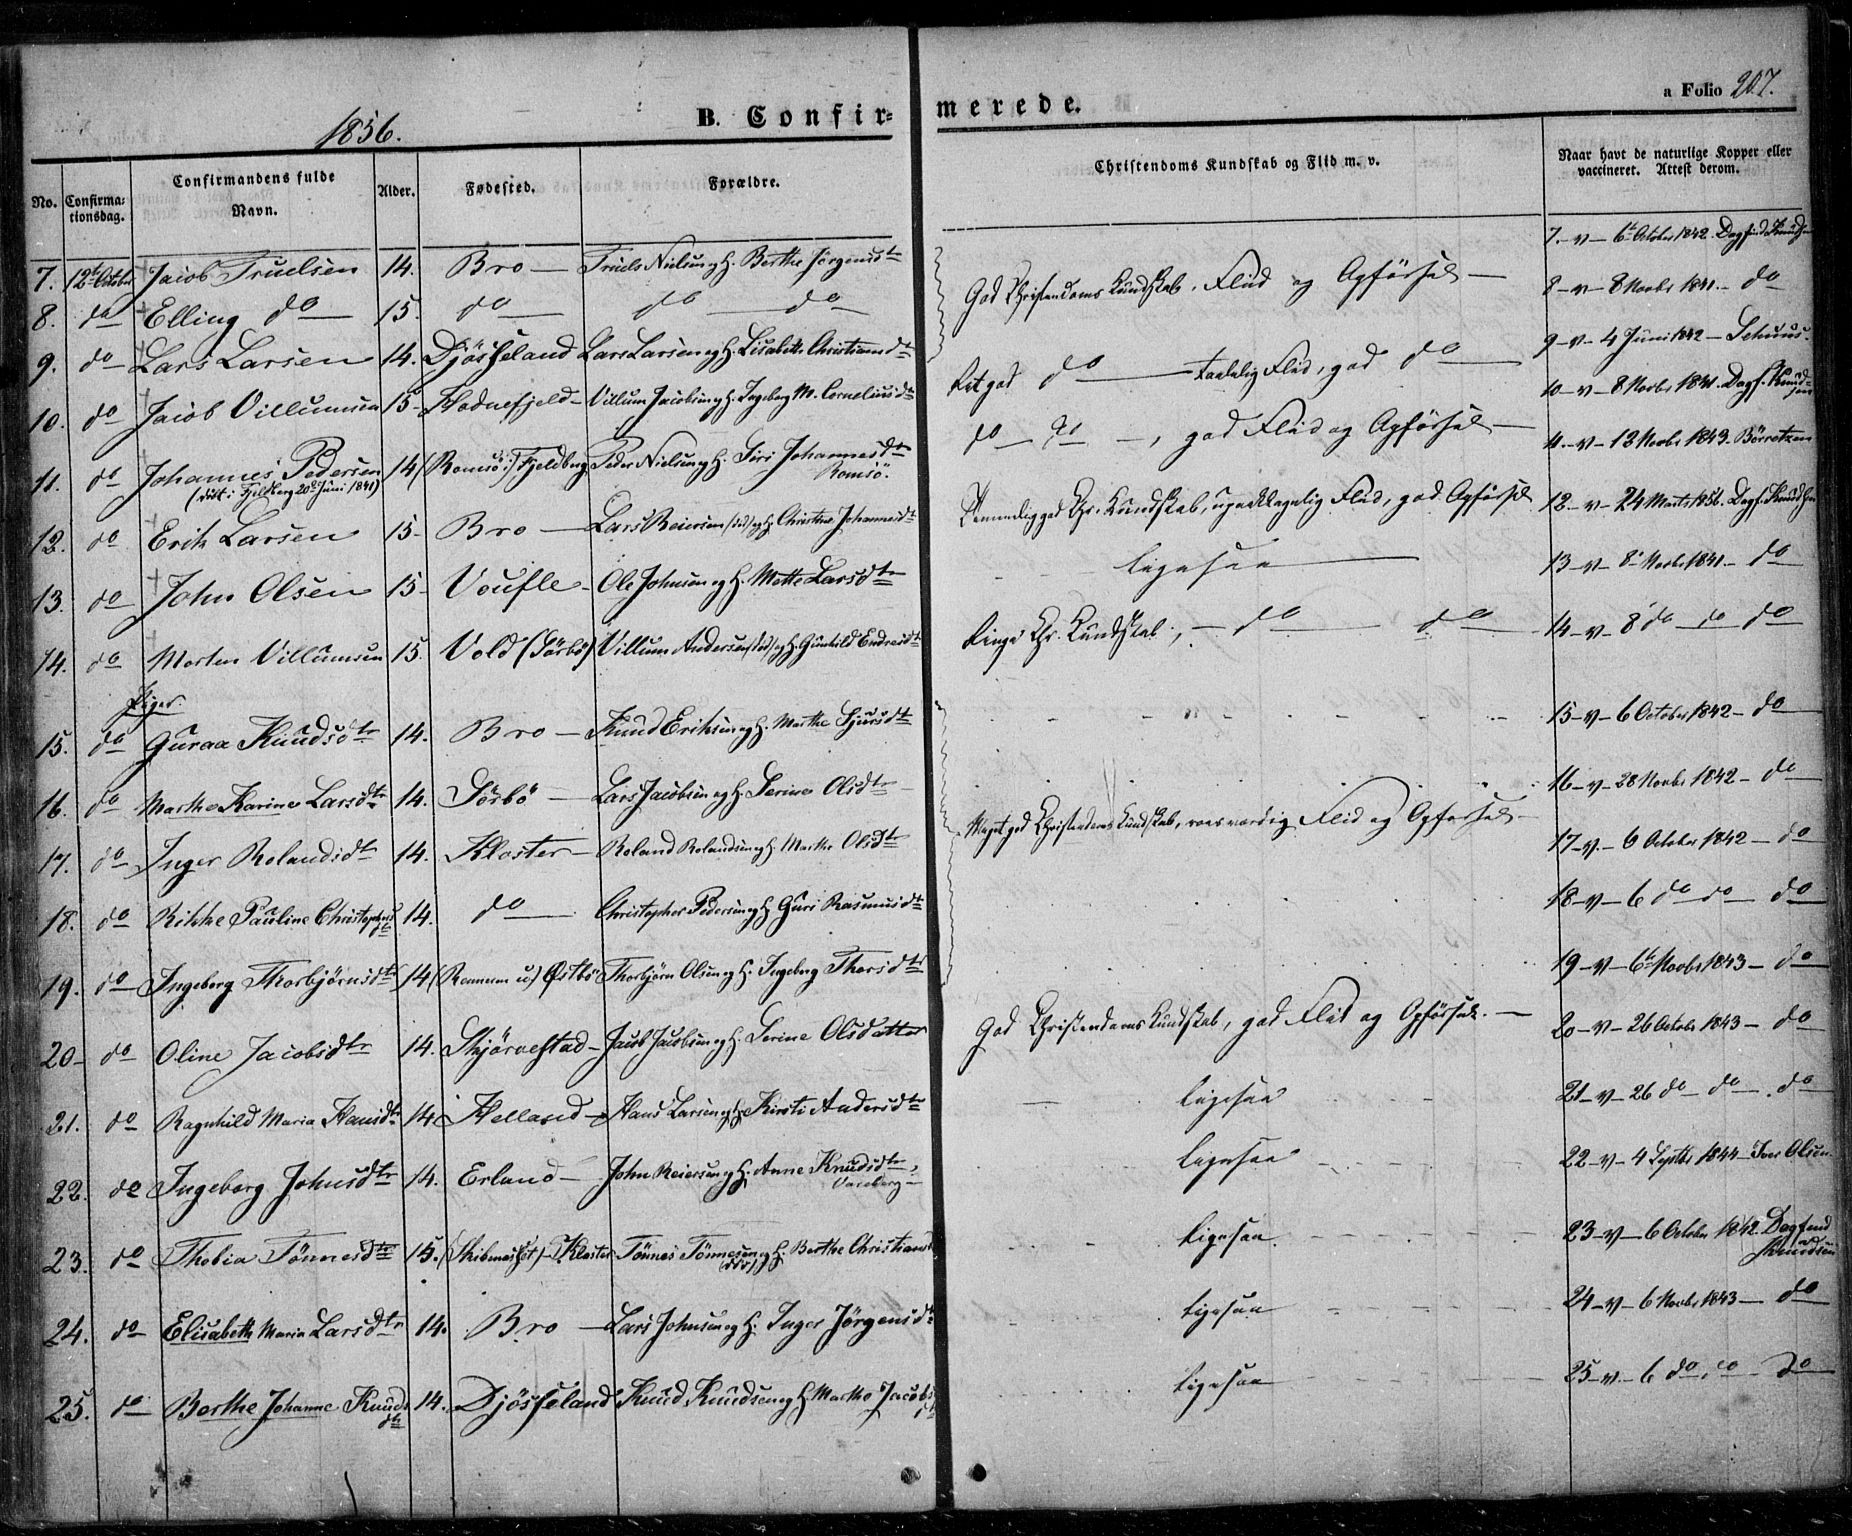 1856. B. Confir- merede. a Folio 207.
No. Confirma-tionsdag. Confirmandens fulde Navn. Alder. Fødested. Forældre. Christendoms Kundskab og Flid m. v. Naar havt de naturlige Kopper eller vaccineret. Attest derom.
7. 12te October Jacob Truelsen 14. Bro — Truels Nielsen og H. Berthe Jørgensdtr God Christendoms Kundskab, Flid og Opførsel — 7. v — 6te October 1842. Dagfind Knudsen
8. do Elling do 15. do do do 8 — v — 8 Novbr 1841. — do
9. do Lars Larsen 14. Djösseland Lars Larsen og H. Lisabeth Christiansdtr Ret god do — taalelig Flid, god do 9 — v — 4 Juni 1842 —
10. do Jacob Villumsen 15 — Hodnefjeld — Villum Jacobsen og H. Ingeborg M. Corneliusdtr do — do —, god Flid og Opførsel — 10 — v — 8 Novbr 1841. Dagf. Knudsen
11. do Johannes Pedersen 14 (Romsö i) Fjeldberg Peder Nielsen og H. Siri Johannesdtr Romsö. 11. — v — 12 Novbr 1843. Börretzen
(döbt i Fjeldberg 20de Juni 1841)
12. do Erik Larsen 15. Bro — Lars Reiersen (död) og H. Christine Johannesdtr Temmelig god Chr. Kundskab, upaaklagelig Flid, god Opførsel 12 — v — 24 Marts 1856. Dagf. Knudsen
13. do John Olsen 15. Voufle — Ole Johnsen og H. Mette Larsdtr ligesaa 13 — v — 8 Novbr 1841. — do
14. do Morten Villumsen 15. Vold (Sörbö) Villum Andersen (död) og H. Gunhild Endresdtr Ringe Chr. Kundskab, — do — do 14 — v — 8 do — do — do
Piger.
15. do Guraa Knudsdtr 14. Bro — Knud Eriksen og H. Marthe Sjursdtr 15 — v — 6 October 1842 — do
16. do Marthe Karine Larsdtr 14. Sörbö — Lars Jacobsen og H. Serine Olsdtr 16 — v — 28 Novbr 1842 — do
17. do Inger Rolandsdtr 14. Kloster — Roland Rolandsen og H. Marthe Olsdtr Meget god Christendoms Kundskab, roesværdig Flid og Opførsel — 17 — v. — 6 October 1842 — do
18. do Rikke Pauline Christophersdtr 14. do Christopher Pedersen og H. Guri Rasmusdtr 18 — v — 6 do do do
19. do Ingeborg Thorbjørnsdtr 14 Östbö Thorbjörn Olsen og H. Ingeborg Thorsdtr 19 — v — 6te Novbr 1843 — do
20 — do Oline Jacobsdtr 14. Skjörvestad — Jacob Jacobsen og H. Serine Olsdatter God Christendoms Kundskab, god Flid og Opførsel. — 20 — v — 26 Octobr 1843 — do
21. do Ragnhild Maria Hansdtr 14. Helland — Hans Larsen og H. Kirsti Andersdtr ligesaa 21 — v — 26 do — do — do
22. do Ingeborg Johnsdtr 14. Erland — John Reiersen og H. Anne Knudsdtr, ligesaa 22 — v — 4 Septbr 1844 — Iver Olsen.
23. do Thobia Tönnesdtr 15. Kloster Tönnes Tönnesen og H. Berthe Christiansdtr ligesaa 23 — v — 6 October 1842. Dagfind Knudsen
24. do Elisabeth Maria Larsdtr 14. Bro — Lars Johnsen og H. Inger Jörgensdtr ligesaa 24 — v — 6 Novbr 1843 — do
25. do Berthe Johanne Knudsdtr 14. Djösseland Knud Knudsen og H. Marthe Jacobsdtr ligesaa 25 — v — 6 do, do — do